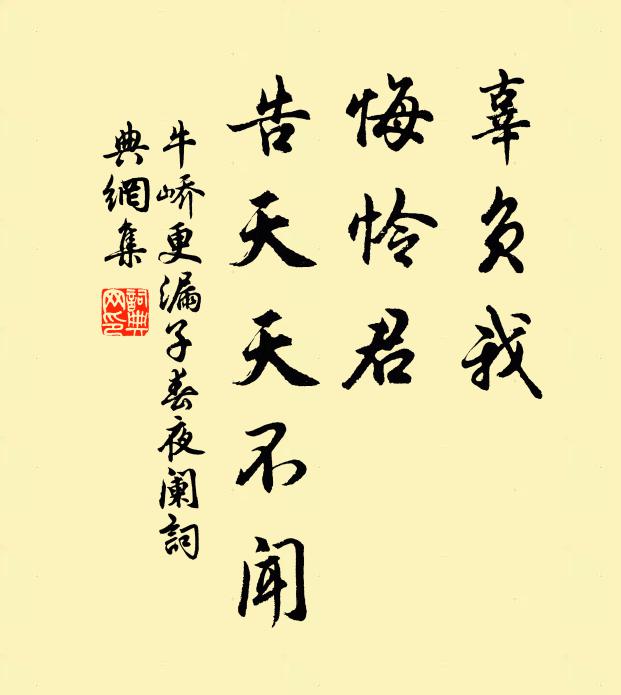 辜负我
悔怜君
告天天不闻
牛峤更漏子春夜阑詞
典網集
詞典
网印